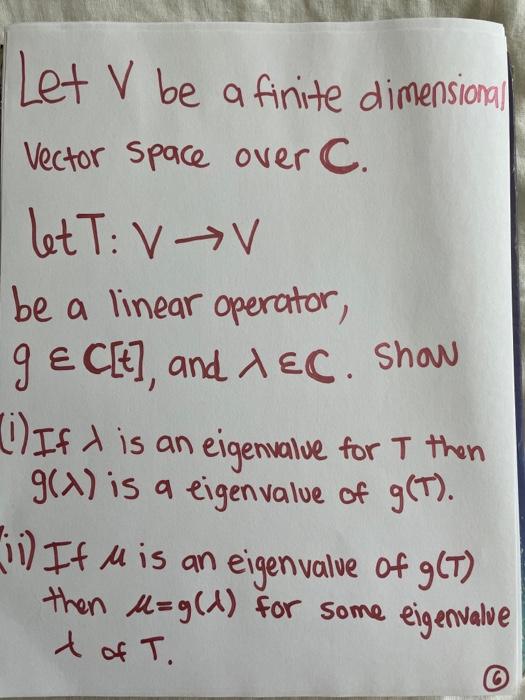 Let V be a finite dimensional
Vector Space over C.
let T: V → V
be a linear operator,
g ∈ C[t], and λ ∈ C. Show
(i) If λ is an eigenvalue for T then
g(λ) is a eigenvalue of g(T).
(ii) If μ is an eigenvalue of g(T)
then μ=g(λ) for some eigenvalue
λ of T.
6